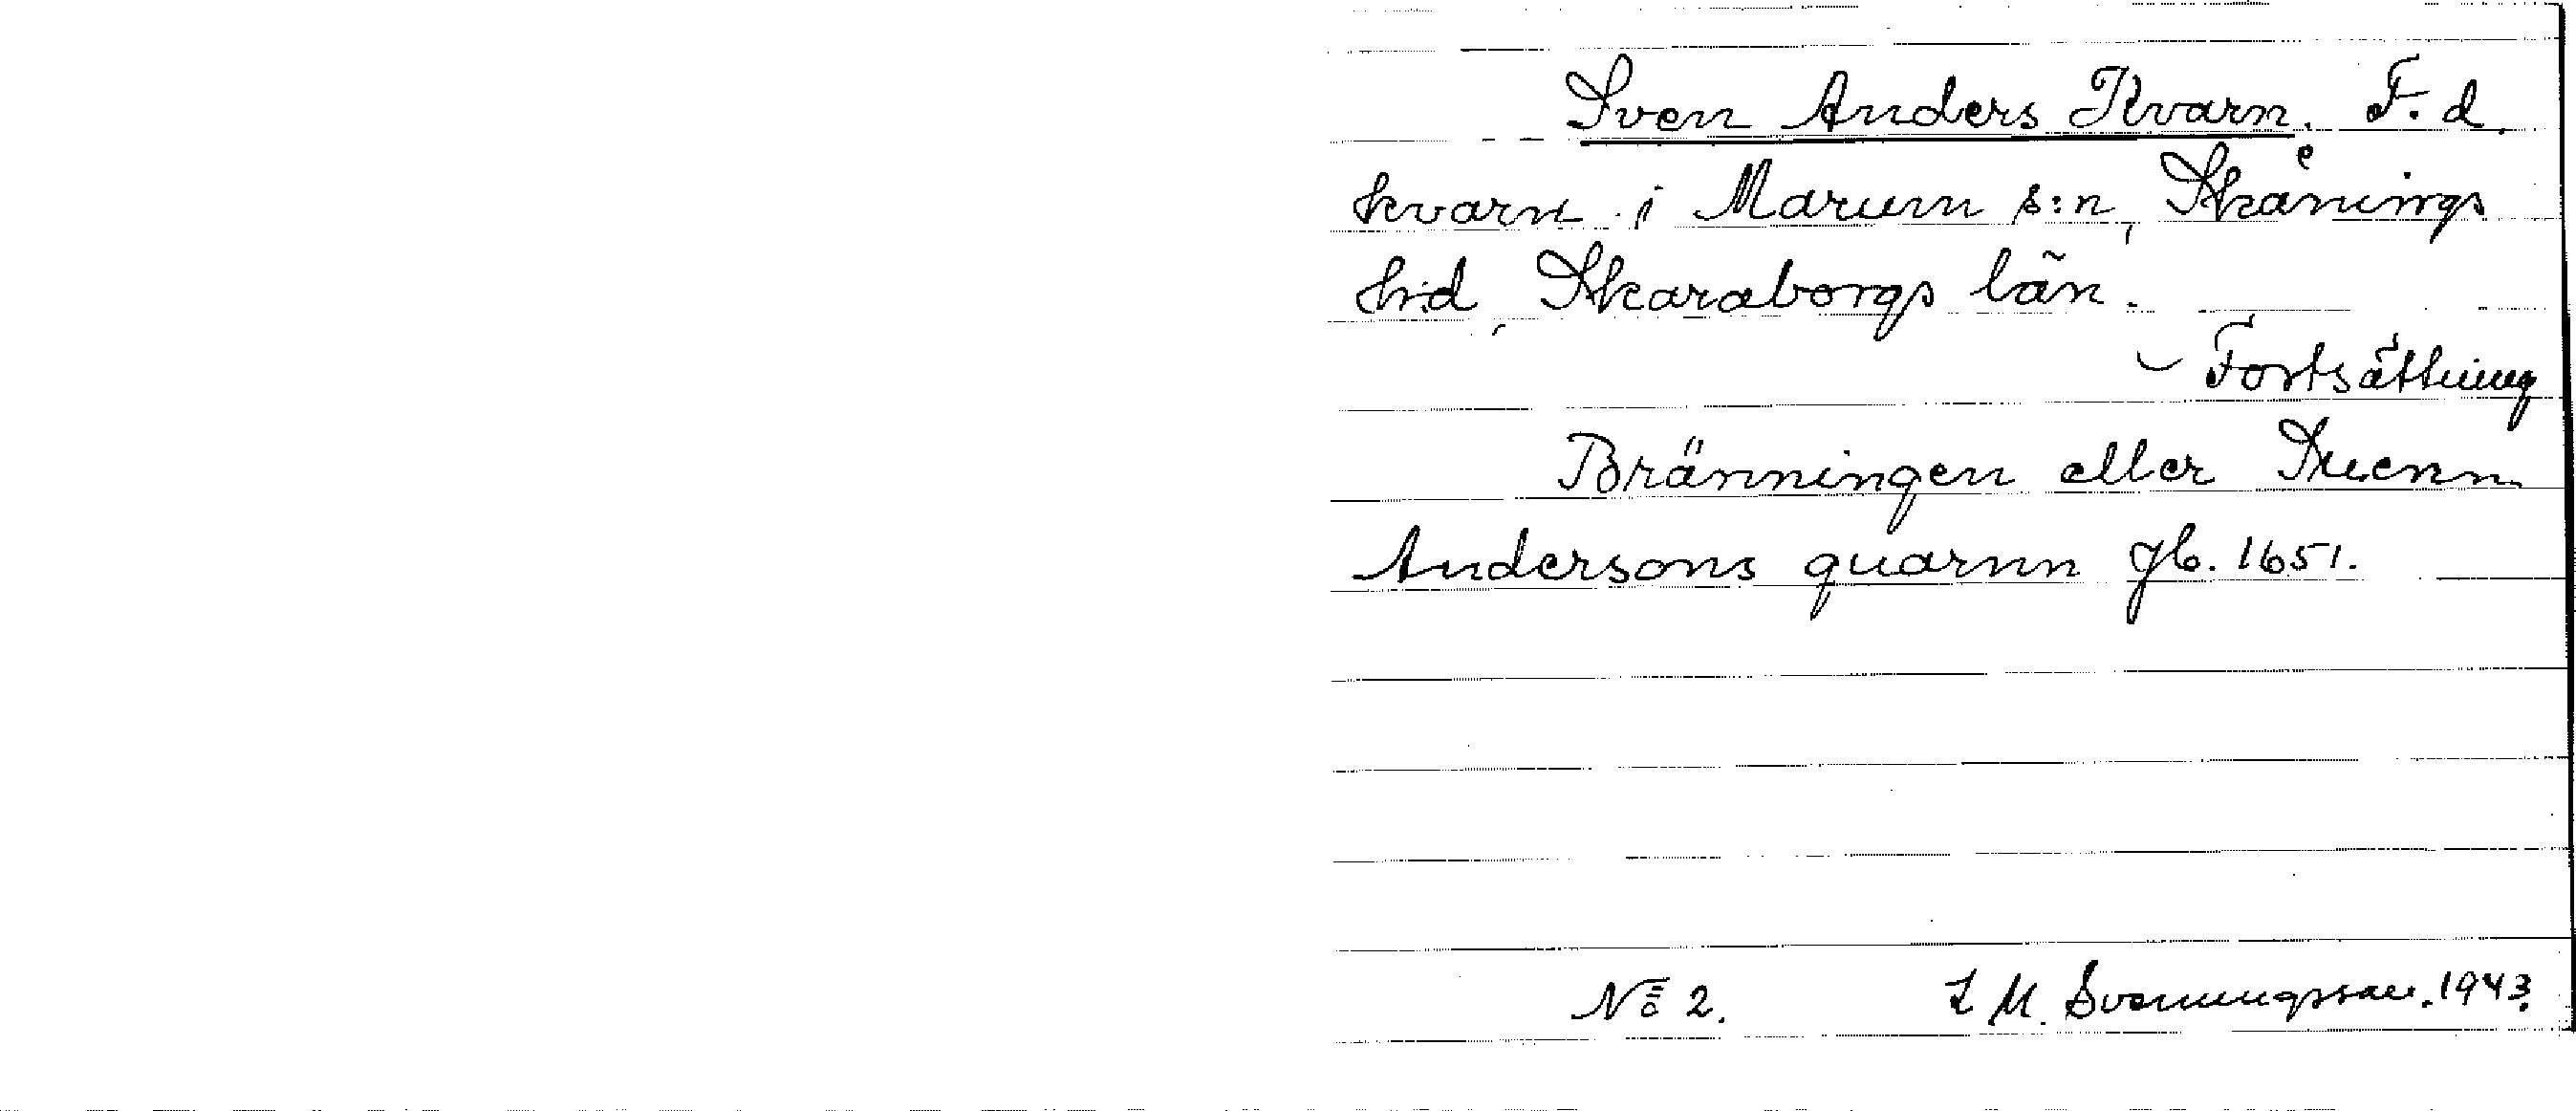 Sven Anders Kvarn. F. d.
kvarn i Marum s:n, Skånings
hd, Skaraborgs län.
Fortsättning
Bränningen eller Suenn
Andersons quarnn jb. 1651.
No 2. I M. Svenungsson. 1943.